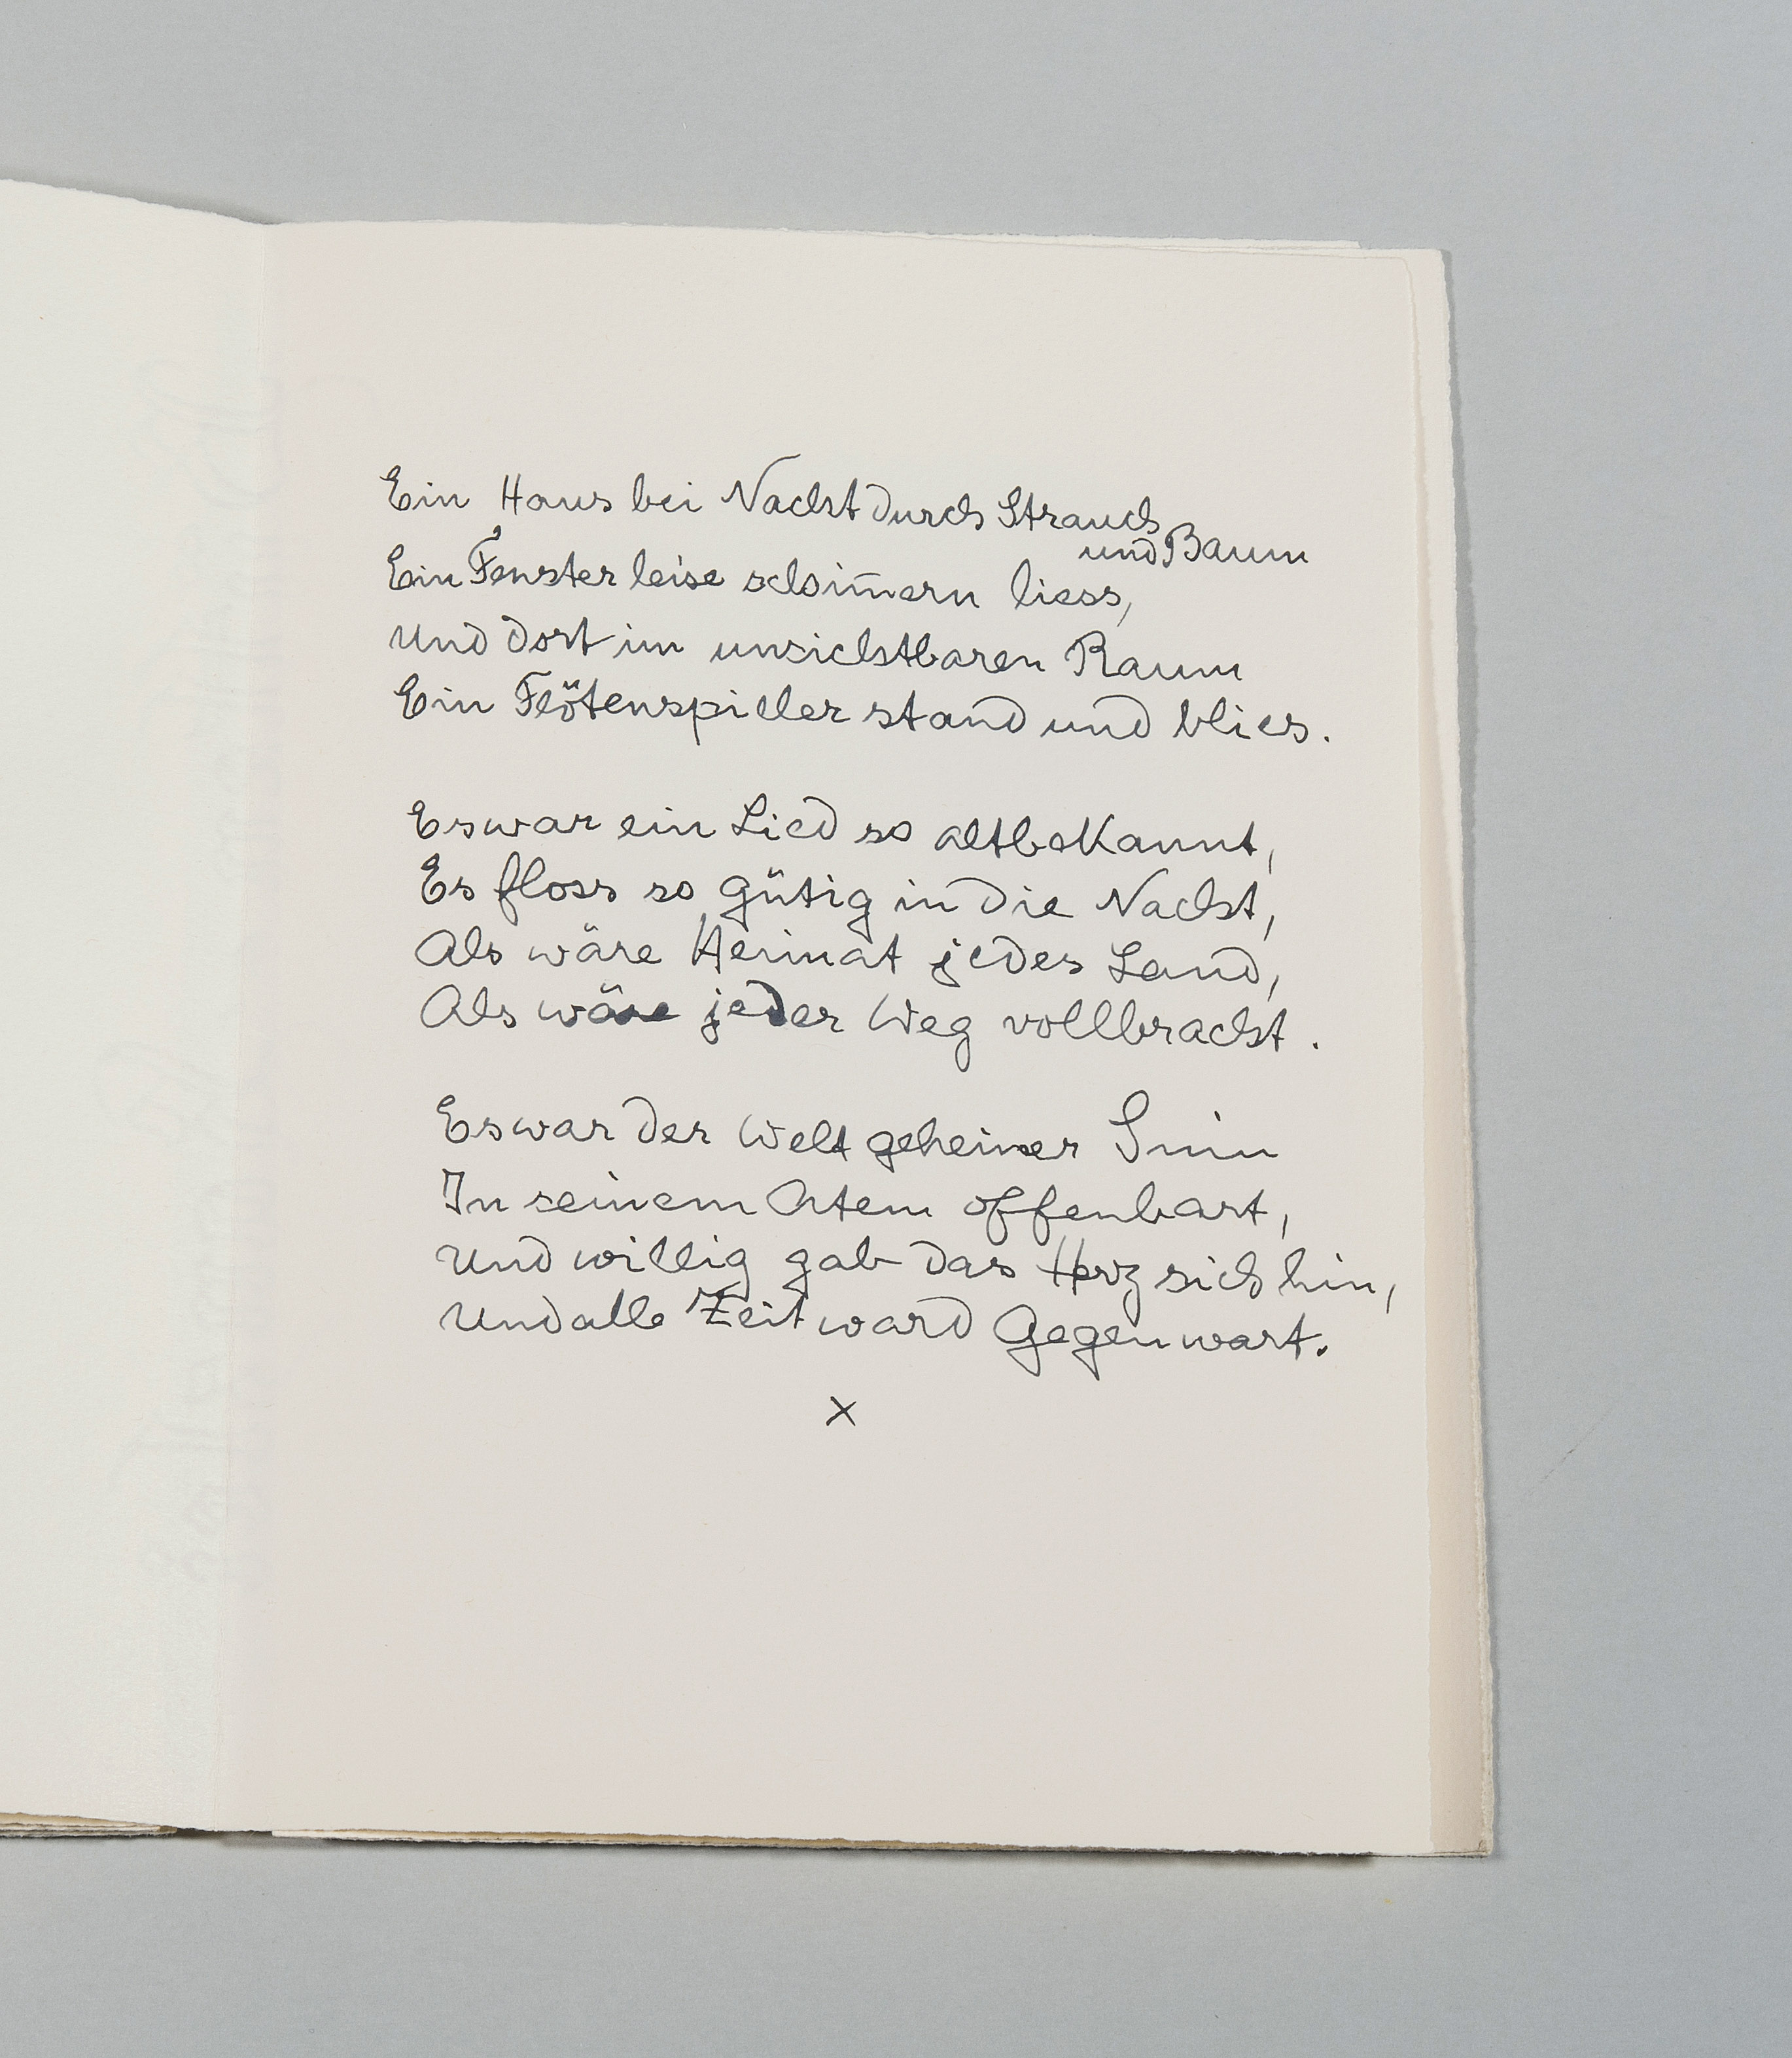 Ein Haus bei Nacht durch Strauch
und Baum
Ein Fenster leise schim̄ern liess,
Und dort im unsichtbaren Raum
Ein Flötenspieler stand und blies.
Es war ein Lied so altbekannt,
Es floss so gütig in die Nacht,
Als wäre Heimat jedes Land,
Als wäre jeder Weg vollbracht.
Es war der Welt geheimer Sinn
In seinem Atem offenbart,
Und willig gab das Herz sich hin,
Und alle Zeit ward Gegenwart.
x